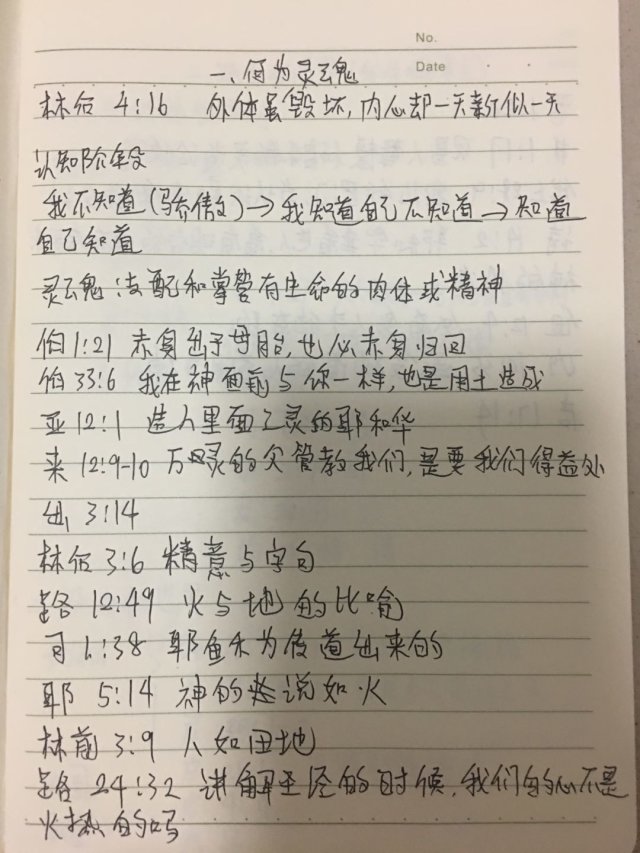 No.
Date
一、何为灵魂
林后 4:16 外体虽毁坏,内心却一天新似一天
认知阶段
我不知道(骄傲)→我知道自己不知道→知道
自己知道
灵魂:支配和掌管有生命的肉体或精神
伯1:21 赤身出于母胎,也必赤身归回
伯33:6 我在神面前与你一样,也是用土造成
亚12:1 造人里面之灵的耶和华
来12:9-10 万灵的父管教我们,是要我们得益处
出 3:14
林后 3:6 精意与字句
路 12:49 火与地的比喻
可 1:38 耶稣为传道出来的
耶 5:14 神的话说如火
林前 3:9 人如田地
路 24:32 讲解圣经的时候,我们的心不是
火热的吗